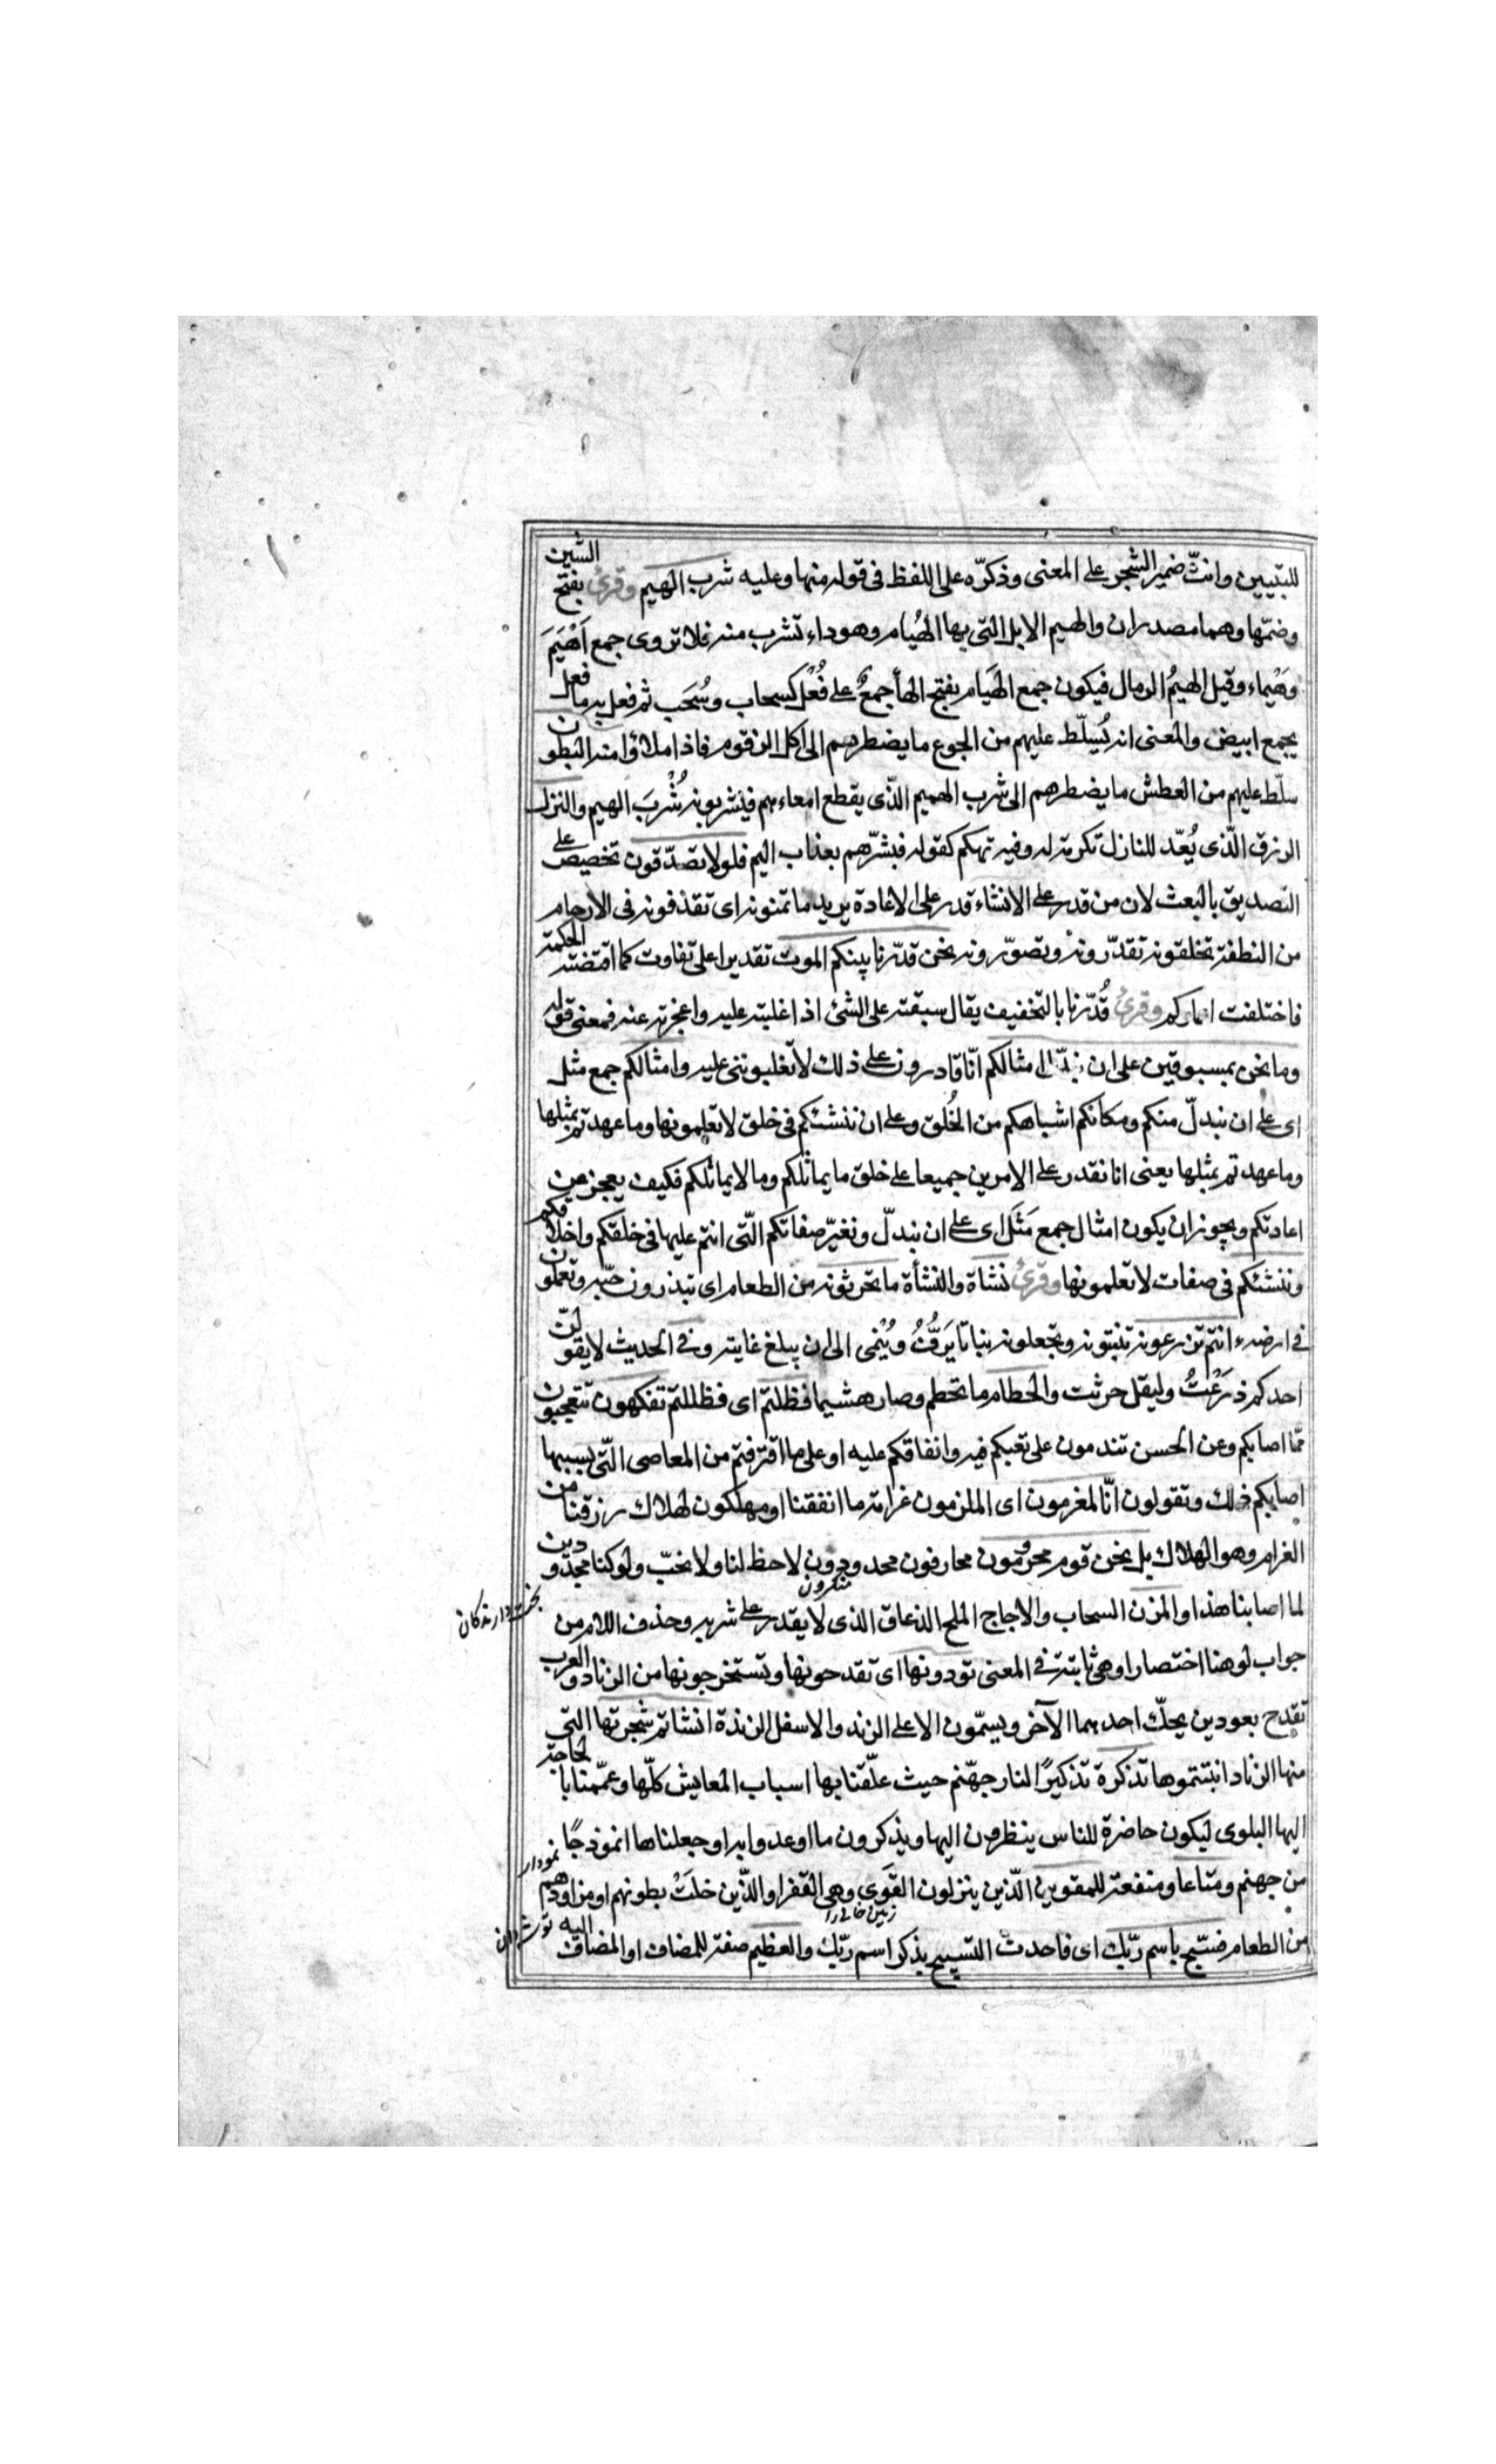 للتبيين وانّث ضمير الشجر على المعنى وذكرّه على اللفظ فى قوله منها وعليه شرب الهيم وقرئ بفتح الشين
وضمّها وهما مصدران والهيم الابل التى بها الهُيام وهو داء تشرب منه فلا تروى جمع اَهْيَمَ
وهَيْماء وقيل الهيمُ الرمال فيكون جمع الهَيام بفتح الهاء جمعٌ على فُعُل كسحاب وسُحَب ثم فعل به ما فعل
بجمع ابيض والمعنى انه يُسلّط عليهم من الجوع ما يضطرهم الى اكل الزقوم فاذا ملاؤا منه البطون
سلّط عليهم من العطش ما يضطرهم الى شرب الحميم الذّى يقطع امعاءهم فيشربونه شُرْبَ الهيم والنزل
الرزق الذّى يُعّد للنازل تكرمة له وفيه تهكم كقوله فبشّرهم بعذاب اليم فلولا تصدّقون تخصيص على
التصديق بالبعث لان من قدر على الانشاء قدر على الاعادة يريد ما تمنونه اى تقذفونه فى الارحام
من النطفة تخلقونه تقدّرونه وتصوّرونه نحن قدّرنا بينكم الموت تقديرا على تفاوت كما اقتضته الحكمة
فاختلفت اعماركم وقرئ قُدّرنا بالتخفيف يقال سبقته على الشئ اذا غلبته عليه واعجزته عنه فمعنى قوله
وما نحن بمسبوقين على ان نبدّل امثالكم انّا قادرون على ذلك لا تغلبوننى عليه وامثالكم جمع مثل
اى على ان نبدلّ منكم ومكانكم اشباهكم من الخُلق وعلى ان ننشئكم فى خلق لا تعلمونها وما عهدتم بمثلها
وما عهدتم بمثلها يعنى انا نقدر على الامرين جميعا على خلق ما يماثلكم وما لا يماثلكم فكيف يعجز عن
اعادتكم ويجوز ان يكون امثال جمع مَثَل اى على ان نبدلّ ونغيّر صفاتكم الّتى انتم عليها فى خلقكم واخلاقكم
وننشئكم فى صفات لا تعلمونها وقرئ نشاة والنشأة ما تحرثونه من الطعام اى تبذرون حبّه وتعملون
فى ارضه ءانتم تزرعونه تنبتونه وتجعلونه نباتا يَرِفُّ ويُنْمى الى ان يبلغ غايته وفى الحديث لا يقولنّ
احدكم زَرَعْتُ وليقل حرثت والحطام ما تحطم وصار هشيما فظلتم اى فظللتم تفكهون تتعجبون
ممّا اصابكم وعن الحسن تندمون على تعبكم فيه وانفاقكم عليه او على ما اقترفتم من المعاصى الّتى بسببها
اصابكم ذلك وتقولون انّا لمغرمون اى الملزمون غرامة ما انفقنا او مهلكون لهلاك رزقنا من
الغرام وهو الهلاك بل نحن قوم محرومون محارفون محدودون لا حظ لنا ولا نخبّ ولو كنا مجدودين
منكرون
بخت دارندكان
لما اصابنا هذا والمزن السحاب والاجاج الملح الذعاق الذى لا يقدر على شربه وحذف اللام من
جواب لو هنا اختصارا وهى ثابتة فى المعنى تورونها اى تقدحونها وتستخرجونها من الزناد والعرب
تقدح بعودين يحكّ احدهما الآخر ويسمّون الاعلى الزند والاسفل الزندة انشاتم شجرتها التى
منها الزناد انبتتموها تذكرة تذكيرًا لنار جهّنم حيث علّقنا بها اسباب المعايش كلّها وعمّمنا بالحاجة
اليها البلوى ليكون حاضرة للناس ينظرون اليها ويذكرون ما اوعدوا به او جعلناها انموذجًا
نمودار
من جهنم ومتاعا ومنفعة للمقوين الذّين ينزلون القَوى وهى القفر او الذّين خلَتْ بطونهم او مزاودهم
زمين خالى را
توشه دان
من الطعام فسبّح باسم ربّك اى فاحدث التسبيح بذكر اسم ربّك والعظيم صفة للمضاف او المضاف اليه